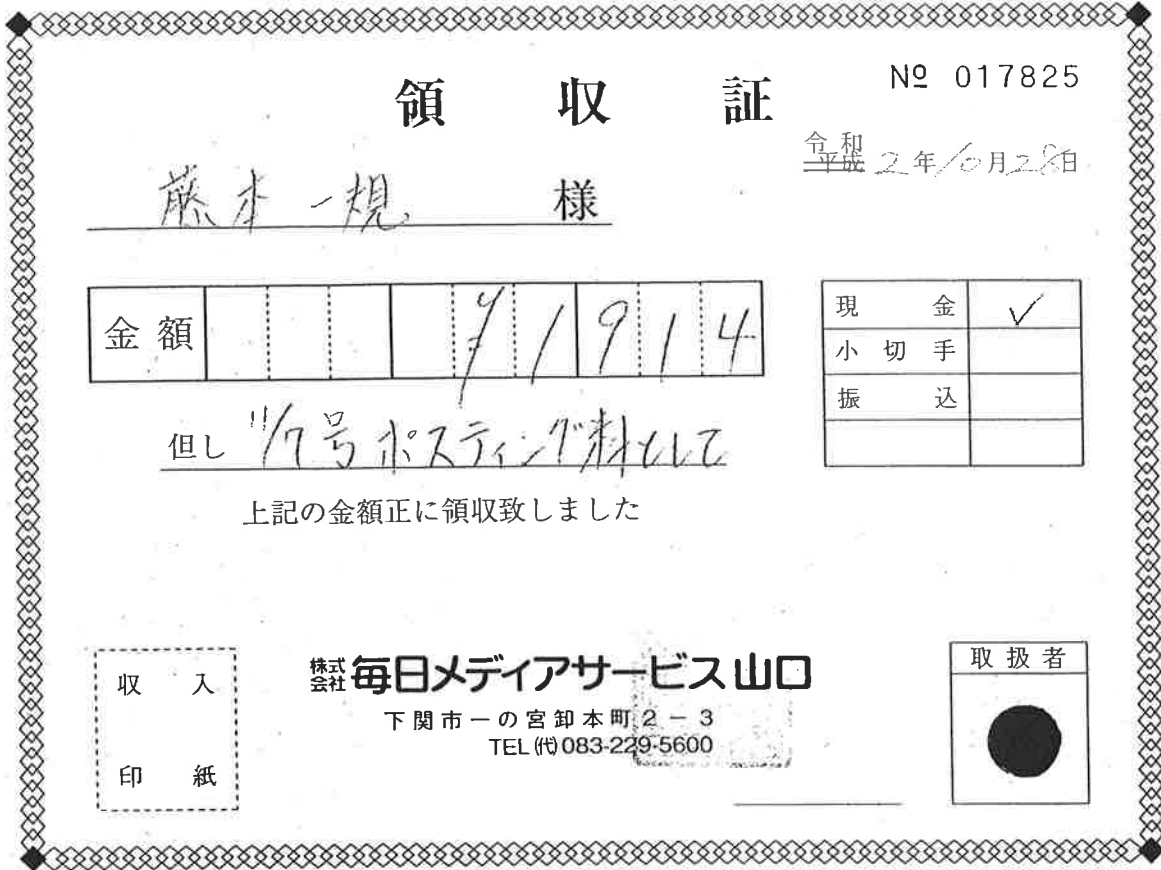 領収証
№ 017825
令和
平成 2年10月28日
藤本一規 様
金額 ¥1914
現金 ✓
小切手
振込
但し 11/7号ポスティング料として
上記の金額正に領収致しました
収入
印紙
株式会社 毎日メディアサービス山口
下関市一の宮卸本町2-3
TEL(代)083-229-5600
取扱者